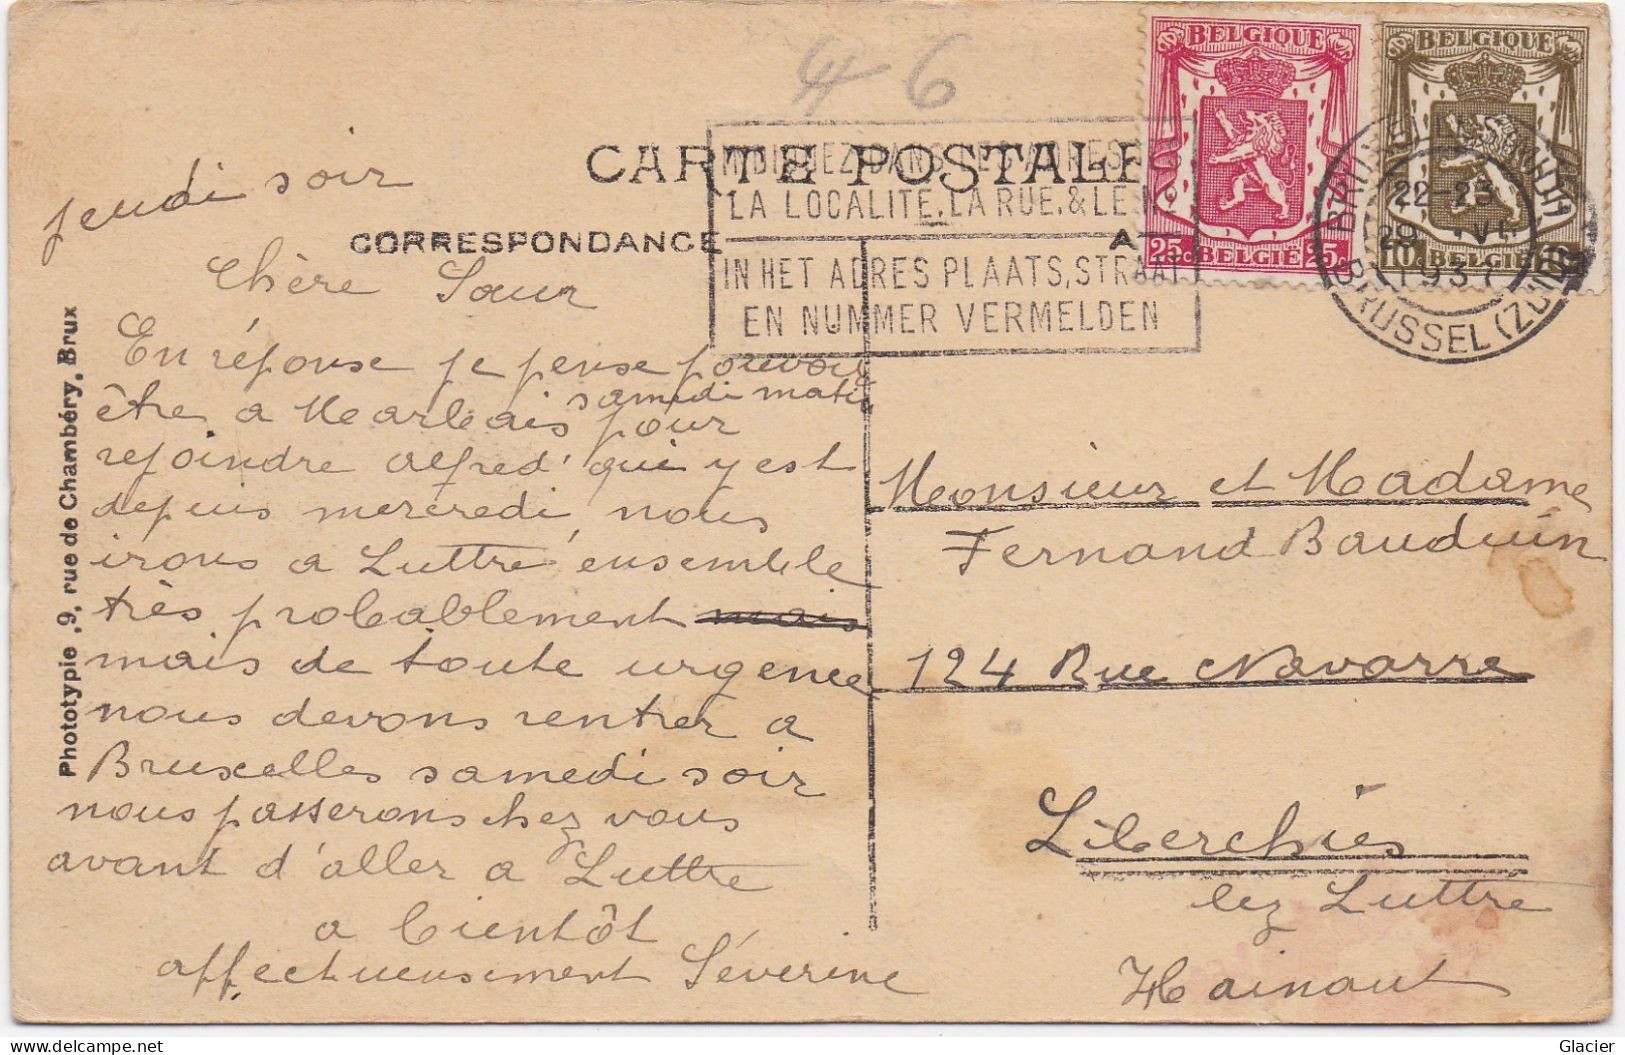 4 6
BELGIQUE
BELGIQUE
CARTE POSTALE
INDIQUEZ DANS LES ADRESSES
LA LOCALITE, LA RUE, & LE No
IN HET ADRES PLAATS, STRAAT
EN NUMMER VERMELDEN
25c BELGIË 25c
10c BELGIË 10c
22-23
29 VII
1937
BRUSSEL (ZUID)
CORRESPONDANCE
A
jeudi soir
Chère Sœur
En réponse je pense pouvoir
être a Marbais samedi matin pour
rejoindre alfred qui y est
depuis mercredi, nous
irons a Luttre ensemble
très probablement mais
mais de toute urgence
nous devons rentrer a
Bruxelles samedi soir
nous passerons chez vous
avant d'aller a Luttre
a bientôt
affectueusement Séverine
Phototypie, 9, rue de Chambéry, Brux
Monsieur et Madame
Fernand Bauduin
124 Rue Navarre
Liberchies
lez Luttre
Hainaut
Glacier